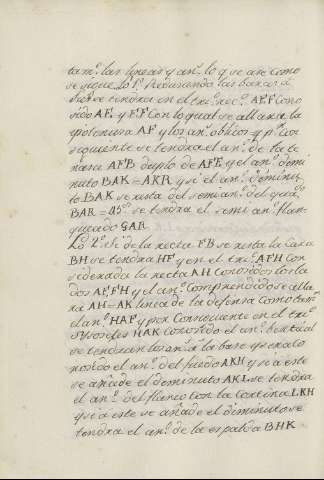 tam.º las lineas y an.º lo q se are como
se sigue Lo 1.º Redusiendo las baras a
se tendra en el tri.º rec.º AEF Cono
sido AE, y EF Con lo qual se allara la
ipotenusa AF y los an.º oblicos y p.r con
siguiente se tendra el an.º de la te
nasa AFB duplo de AFE y el an.º demi
nuto BAK = AKR y si el an.º deminu
to BAK se resta del semi an.º del
BAR = 45º se tendra el semi an.º flan
queado GAR
Lo 2.º si de la recta FB se resta la Cara
BH se tendra HF y en el tri.º AFH con
siderada la recta AH conosidos los la
dos AF, FH y el an.º Comprendido se alla
ra AH = AK linea de la defensa como tam
el an.º HAF y por Conciguiente en el tri.º
ysosceles HAK conosido el an.º bertical
se tendran los an.º a la base y sera lo
nosido el an.º del AKH y si a este
se añade el deminuto AKL se tendra
el an.º del flanco con la Cortina LKH
y si a este se añade el diminuto se
tendra el an.º de la espalda BHK